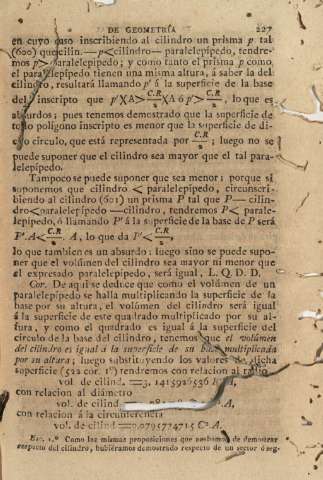 DE GEOMETRÍA 227
en cuyo caso inscribiendo al cilindro un prisma p tal
(600) que cilin. — p < cilindro — paralelepípedo, tendre-
mos p > paralelepípedo; y como tanto el prisma p como
el paralelepípedo tienen una misma altura, á saber la del
cilindro, resultará llamando p' á la superficie de la base
del inscripto que p' X A > C.R/2 X A ó p' > C.R/2, lo que es
absurdos; pues tenemos demostrado que la superficie de
todo polígono inscripto es menor que la superficie de di-
cho circulo, que está representada por C.R/2; luego no se
puede suponer que el cilindro sea mayor que el tal para-
lelepípedo.
Tampoco se puede suponer que sea menor; porque si
suponemos que cilindro < paralelepipedo, circunscri-
biendo al cilindro (601) un prisma P tal que P — cilin-
dro < paralelepípedo — cilindro, tendremos P < parale-
lepípedo, ó llamando P' á la superficie de la base de P será
P'.A < C.R/2 . A, lo que da P' < C.R/2,
lo que tambien es un absurdo: luego sino se puede supo-
ner que el volúmen del cilindro sea mayor ni menor que
el expresado paralelepipedo, será igual, L. Q. D. D.
Cor. De aquí se deduce que como el volúmen de un
paralelepípedo se halla multiplicando la superficie de la
base por su altura, el volúmen del cilindro será igual
á la superficie de este quadrado multiplicado por su al-
tura, y como el quadrado es igual á la superficie del
circulo de la base del cilindro, tenemos que el volúmen
del cilindro es igual á la superficie de su base multiplicada
por su altura; luego substituyendo los valores de dicha
superficie (522 cor. 1º) tendremos con relacion al radio
vol. de cilind. = 3, 1415926536 A,
con relacion al diámetro
vol. de cilind A,
con relacion á la circunferencia
vol. de cilind = 0,0795774715 C² A.
Esc. 1.º Como las mismas proposiciones que acabamos de demostrar
respecto del cilindro, hubiéramos demostrado respecto de un sector ó seg-